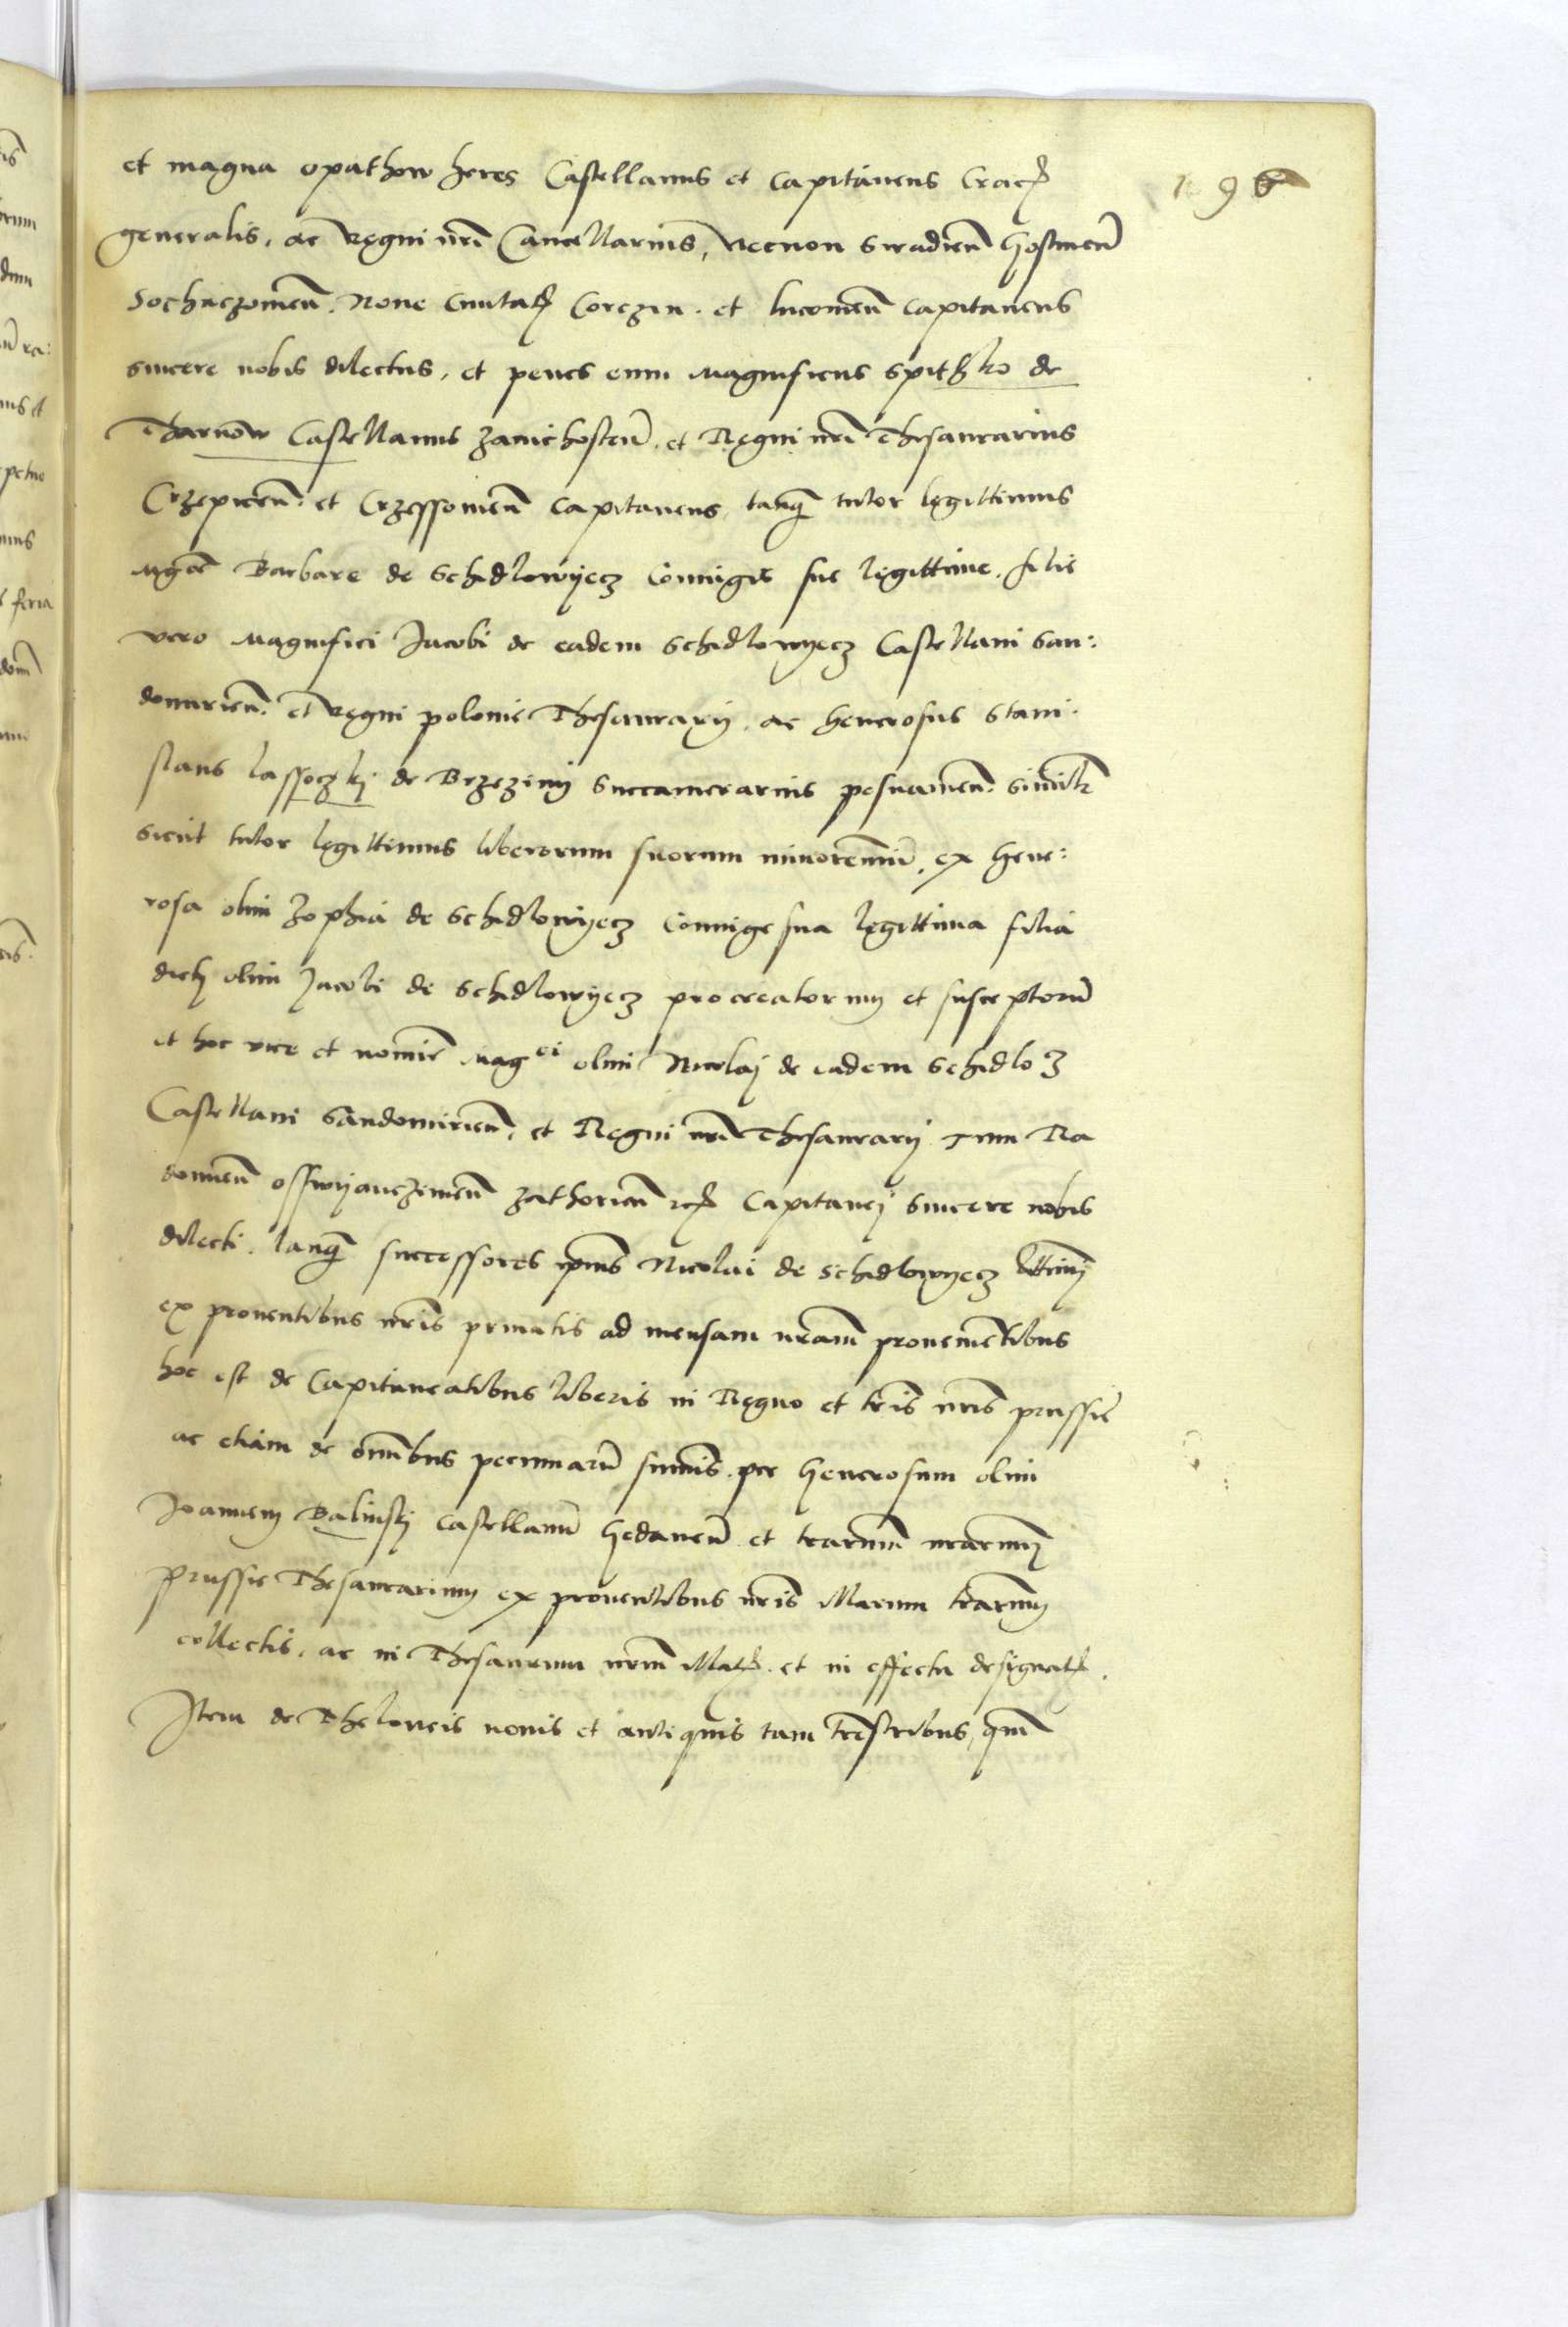 196
et magna opathow heres Castellanus et capitaneus Cracꝭ
generalis, ac Regni nrī Cancellarius, necnon Siradień Gostinēn
Sochaczovień. None Civitatꝭ Corczin. et Lucovień capitaneus
sincere nobis dilectus, et penes eum Magnificus Spithko de
Tharnow Castellanus Zavichosteń. et Regni nrī Thesaurarius
Crzepiceń. et Crzessovień Capitaneus, tanqꝫ tutor legittimus
Mgce Barbare de Schidlowyecz Coniugis sue legittime. filie
vero Magnifici Jacobi de eadem Schidlowyecz Castellani San:
domirień. et Regni polonie Thesaurarij. ac Generosus Stani:
slaus Lassoczkj de Brzezinij Succamerarius posnanień. similr
sicut tutor legittimus liberorum suorum minorenniū. ex Gene:
rosa olim Zophia de Schidlowyecz Coniuge sua legittima filia
dicti olim Jacobi de Schidlowyecz procreatorum et susceptorū
et hoc vice et nomīe Magci olim Nicolaj de eadem Schidlo ꝫ
Castellani Sandomirień. et Regni nrī Thesaurarij tum Ra
domień osswyanczimień Zathorień ꝛcꝭ Capitanej sincere nobis
dilecti. tanqꝫ successores ipīus Nicolai de Schidlowyecz lttimj
ex proventibus nrīs privatis ad mensam nrām provenientibus
hoc est de Capitaneatibus liberis in Regno et trīs nrīs prussie
ac etiam de omībus pecuniarū summīs. per Generosum olim
Joannem Balinskj castellanū Gedaneń et terrarum nrārum
Prussie Thesaurarium ex proventibus nrīs illarum trārum
collectis. ac in Thesaurum nrūm illatꝭ. et in effectu designatꝭ.
Item de Theloneis novis et antiquis tam trēstribus, qm̄